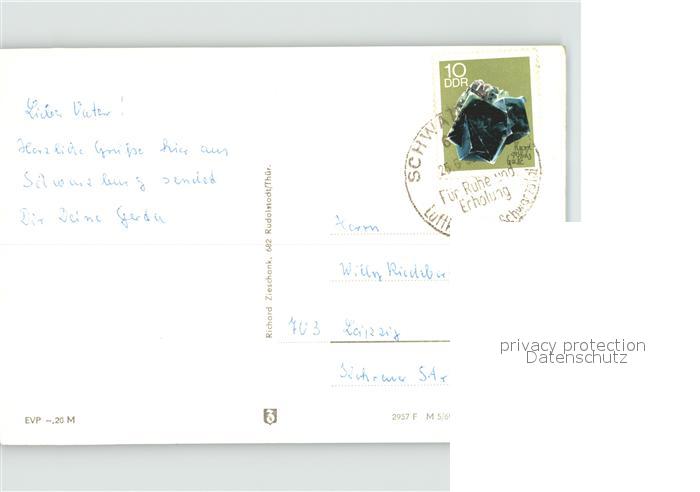 10
DDR
Lieber Vater!
Herzliche Grüße hier aus
Schwarzburg sendet
Dir Deine Gerda
SCHWA
Für Ruhe und
Erholung
Luft
Schwarzatal
Herrn
Willy
703 Leipzig
Str
Richard Zieschank, 682 Rudolstadt/Thür.
EVP -,20 M
2957 F M 5/69
privacy protection
Datenschutz